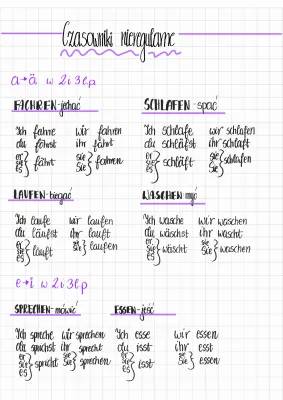 Czasowniki nieregularne
a→ä w 2i3lp
FACHREN-jechać SCHLAFEN-spać
Ich fahre wir fahren Ich schlafe wir schlafen
du fährst ihr fahrt du schläfst ihr schlaft
er sie es } fährt sie Sie } fahren er sie es } schläft sie Sie } schlafen
LAUFEN-biegać WASCHEN-myć
Ich laufe wir laufen Ich wasche wir waschen
du läufst ihr lauft du wäschst ihr wascht
er sie es } läuft sie Sie } laufen er sie es } wäscht sie Sie } waschen
e→i w 2i3lp
SPRECHEN-mówić ESSEN-jeść
Ich spreche wir sprechen Ich esse wir essen
du sprichst ihr sprecht du isst ihr esst
er sie es } spricht sie Sie } sprechen er sie es } isst sie Sie } essen